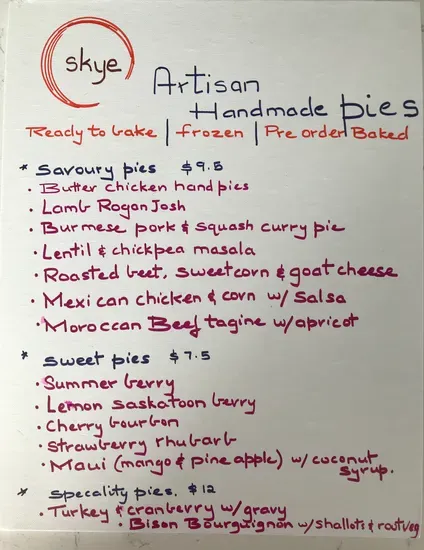 skye
Artisan
Handmade pies
Ready to bake | frozen | Pre order Baked
* Savoury pies $9.5
• Butter chicken handpies
• Lamb Rogan Josh
• Burmese pork & squash curry pie
• Lentil & chickpea masala
• Roasted beet, sweetcorn & goat cheese
• Mexican chicken & corn w/ Salsa
• Moroccan Beef tagine w/apricot
* Sweet pies $7.5
• Summer berry
• Lemon saskatoon berry
• Cherry bourbon
• Strawberry rhubarb
• Maui (mango & pineapple) w/ coconut
syrup.
* Specality pies. $12
• Turkey & cranberry w/gravy
• Bison Bourguignon w/shallots & rootveg